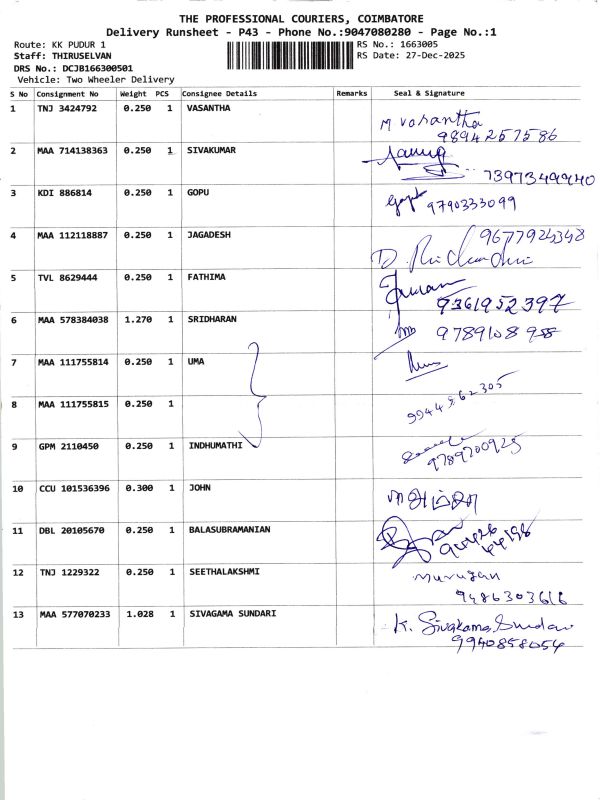 THE PROFESSIONAL COURIERS, COIMBATORE
Delivery Runsheet - P43 - Phone No.:9047080280 - Page No.:1
Route: KK PUDUR 1 RS No.: 1663005
Staff: THIRUSELVAN RS Date: 27-Dec-2025
DRS No.: DCJB166300501
Vehicle: Two Wheeler Delivery
S No Consignment No Weight PCS Consignee Details Remarks Seal & Signature
1 TNJ 3424792 0.250 1 VASANTHA M Vasantha
9894257586
2 MAA 714138363 0.250 1 SIVAKUMAR
7397349940
3 KDI 886814 0.250 1 GOPU Gopu 9790333099
4 MAA 112118887 0.250 1 JAGADESH 9677924348
5 TVL 8629444 0.250 1 FATHIMA
9361952397
6 MAA 578384038 1.270 1 SRIDHARAN
9789108988
7 MAA 111755814 0.250 1 UMA
8 MAA 111755815 0.250 1 9944862305
9 GPM 2110450 0.250 1 INDHUMATHI
9789700925
10 CCU 101536396 0.300 1 JOHN
11 DBL 20105670 0.250 1 BALASUBRAMANIAN
12 TNJ 1229322 0.250 1 SEETHALAKSHMI Murugan
9486303616
13 MAA 577070233 1.028 1 SIVAGAMA SUNDARI K. Sivakama Sundari
9940858054